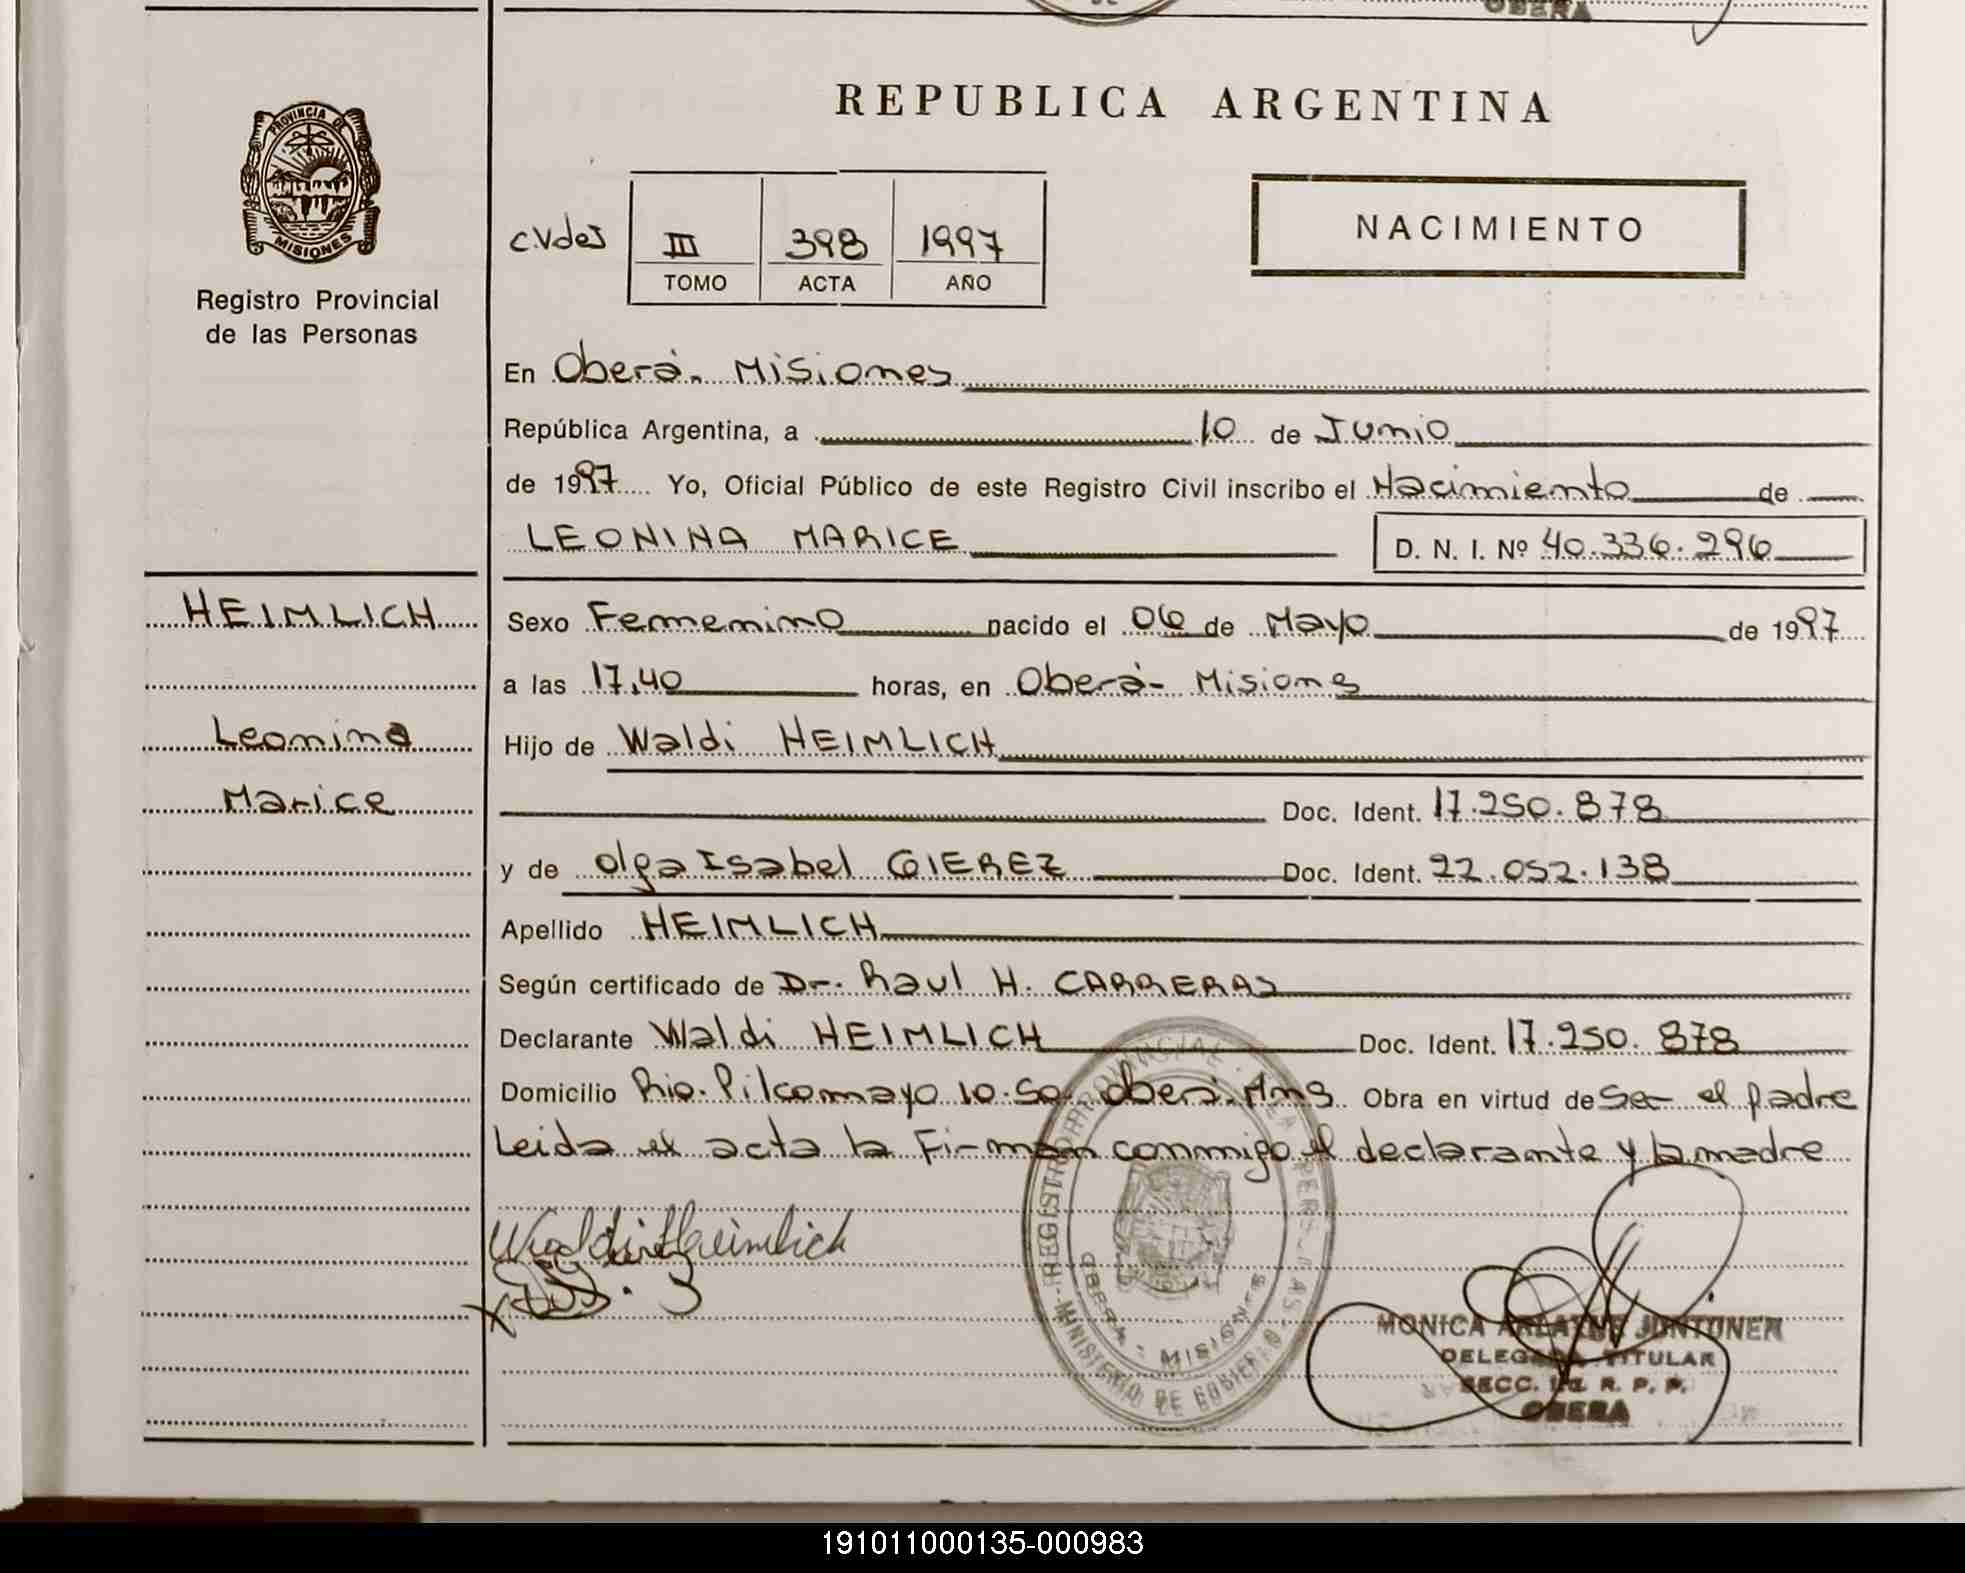 OBERA
REPUBLICA ARGENTINA
PROVINCIA DE
MISIONES
Registro Provincial
de las Personas
C.Vdes III 398 1997
TOMO ACTA AÑO
NACIMIENTO
En Oberá. Misiones
República Argentina, a 10 de Junio
de 1997 Yo, Oficial Público de este Registro Civil inscribo el Nacimiento de
LEONINA MARICE D. N. I. Nº 40.336.296
HEIMLICH
Leonina
Marice
Sexo Femenino nacido el 06 de Mayo de 1997
a las 17,40 horas, en Oberá- Misiones
Hijo de Waldi HEIMLICH
Doc. Ident. 17.250.878
y de Olga Isabel GIEREZ Doc. Ident. 22.052.138
Apellido HEIMLICH
Según certificado de Dr. Raul H. CARRERAS
Declarante Waldi HEIMLICH Doc. Ident. 17.250.878
Domicilio Rio. Pilcomayo 10.50 Oberá. Mns Obra en virtud de Ser el padre
Leida el acta la Firman conmigo el declarante y la madre
Waldi Heimlich
REGISTRO PROVINCIAL DE LAS PERSONAS
OBERA - MISIONES
MINISTERIO DE GOBIERNO
MONICA ARLAINE JUNTUNEN
DELEGADA TITULAR
SECC. 1a. R. P. P.
OBERA
191011000135-000983